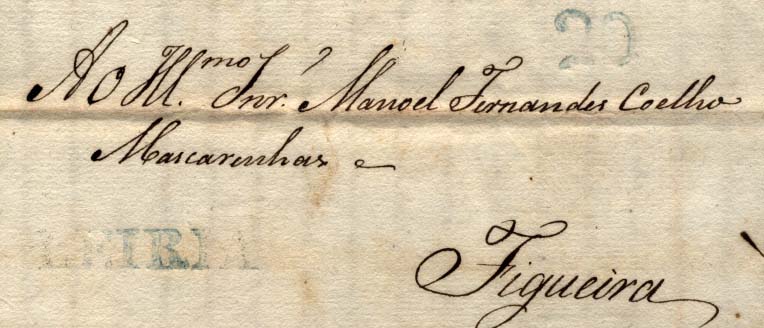 20
Ao Ill.mo Snr. Manoel Fernandes Coelho
Mascarenhas
LEIRIA
Figueira